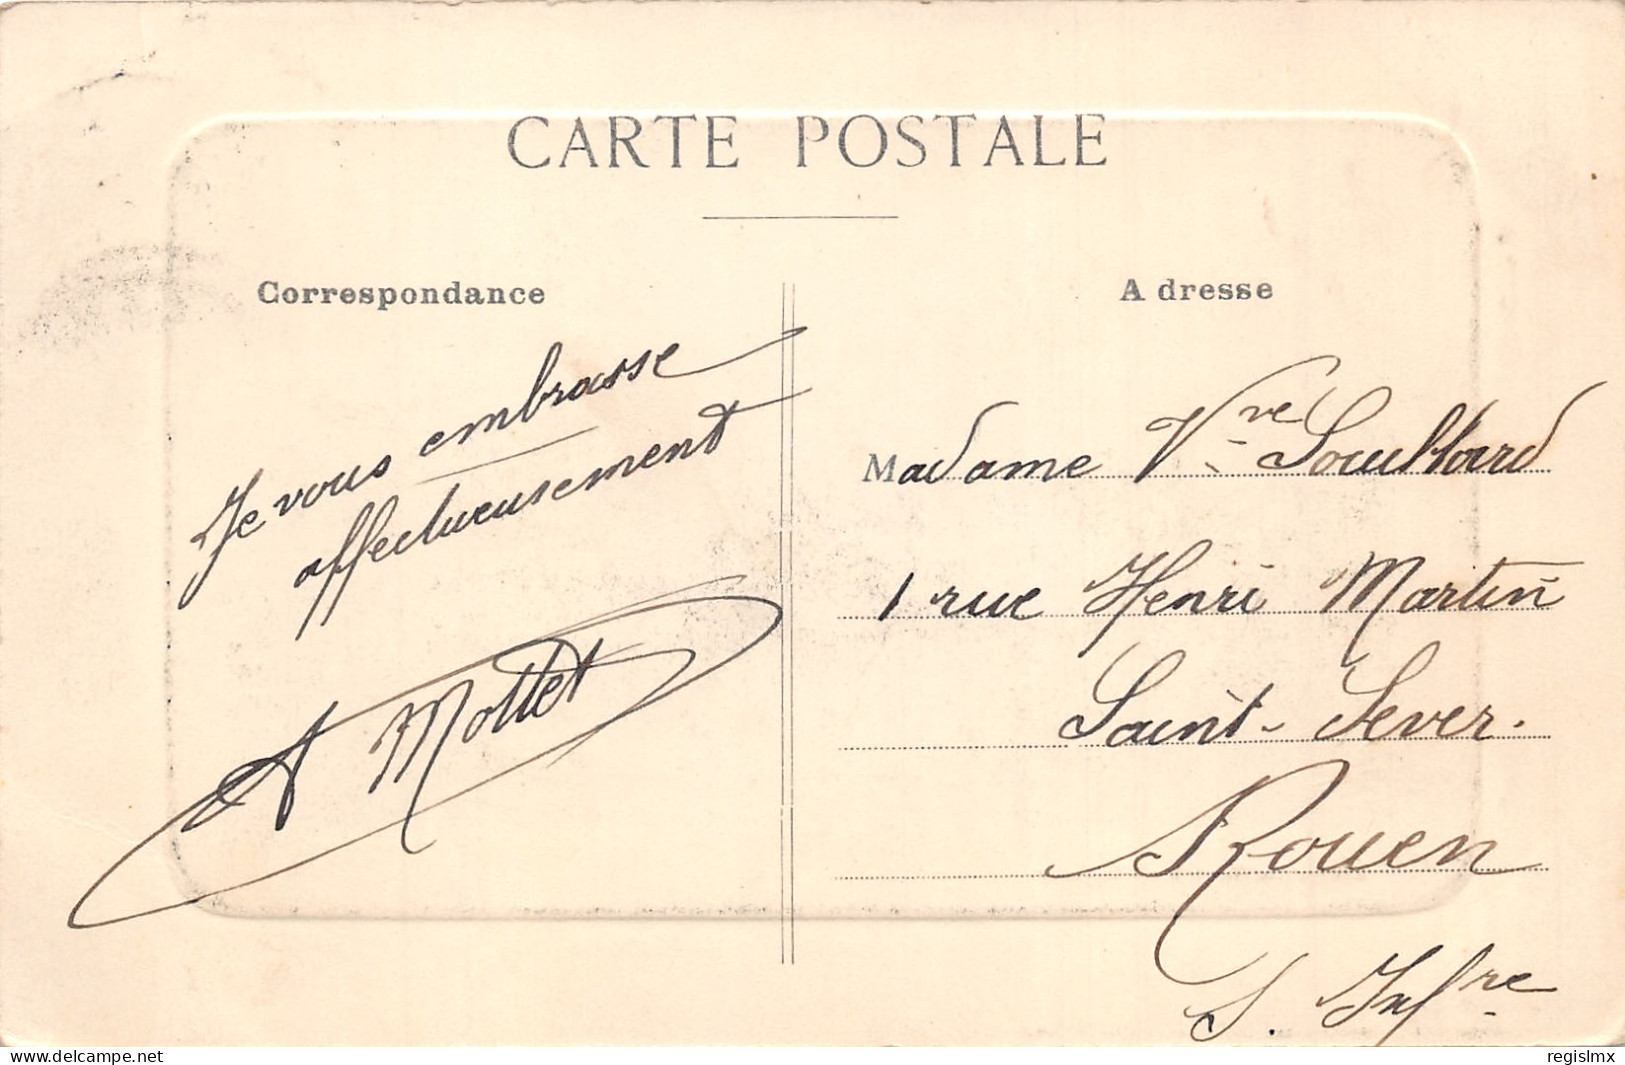 CARTE POSTALE
Correspondance
Je vous embrasse
affectueusement
A Mottet
A dresse
Madame Vve
1 rue Henri Martin
Saint-Sever.
Rouen
S. Infre
www.delcampe.net
regislmx